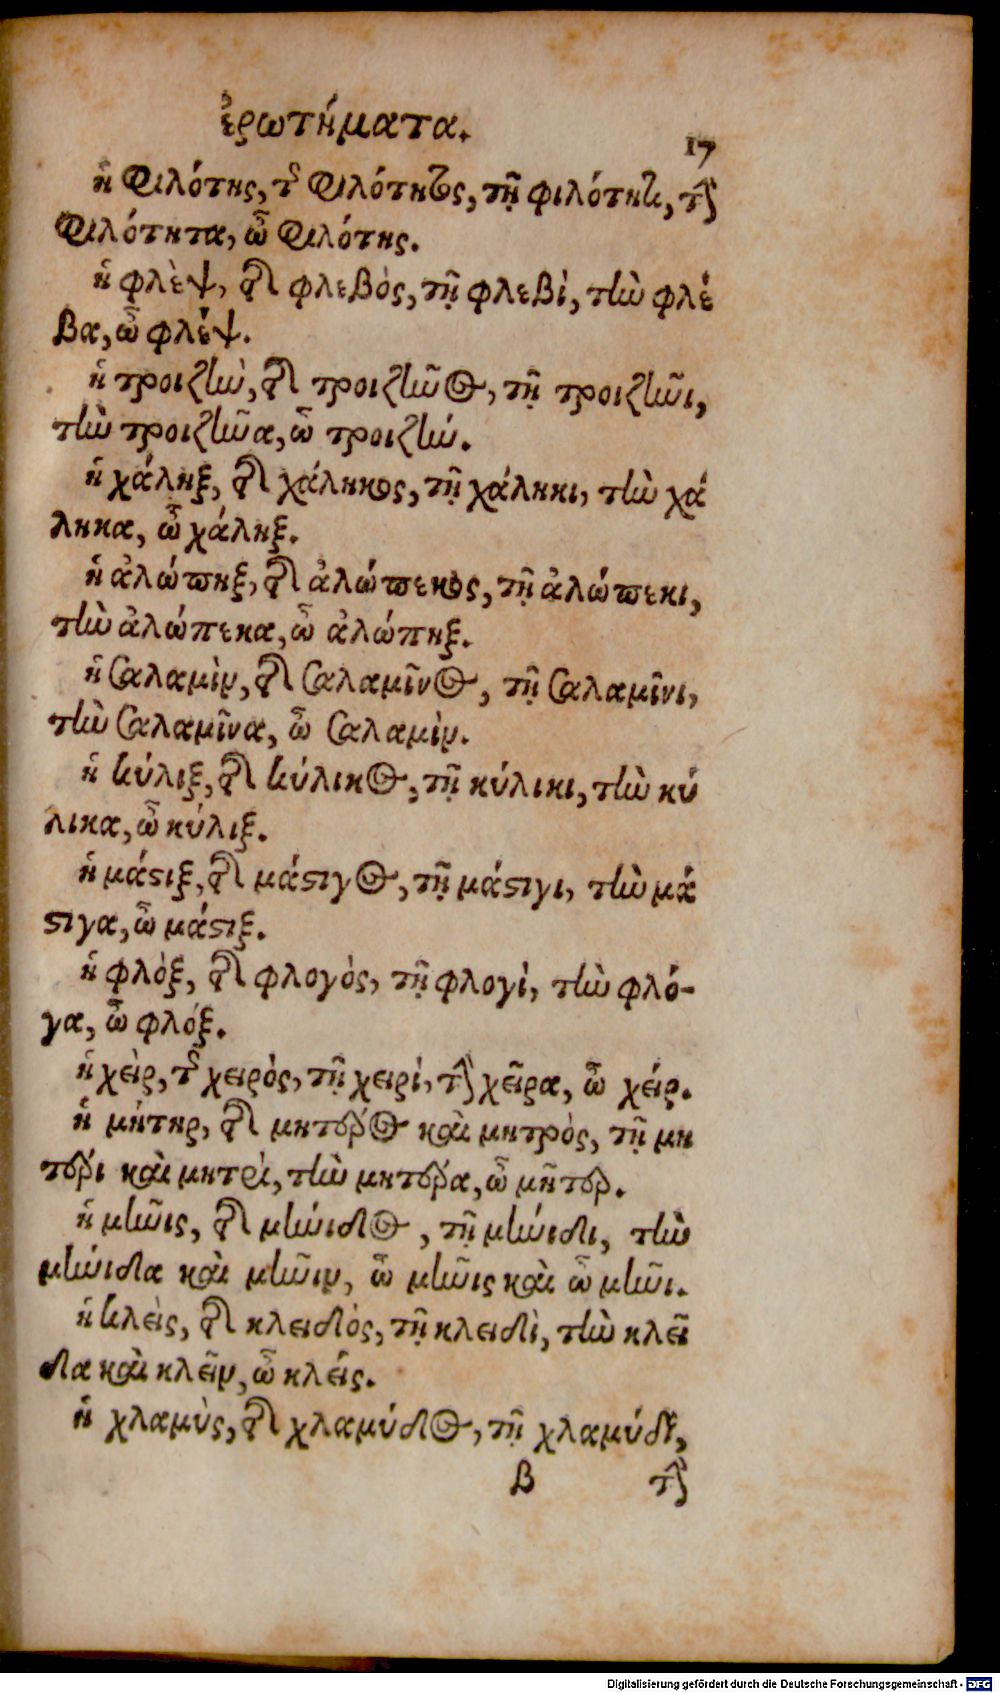 ἐρωτήματα.
17
ἡ φιλότης, τῆς φιλότητος, τῇ φιλότητι, τὴν
φιλότητα, ὦ φιλότης.
ἡ φλὲψ, τῆς φλεβὸς, τῇ φλεβὶ, τὴν φλέ
βα, ὦ φλέψ.
ἡ τροιζὴν, τῆς τροιζῆνος, τῇ τροιζῆνι,
τὴν τροιζῆνα, ὦ τροιζήν.
ἡ χάληξ, τῆς χάληκος, τῇ χάληκι, τὴν χά
ληκα, ὦ χάληξ.
ἡ ἀλώπηξ, τῆς ἀλώπεκος, τῇ ἀλώπεκι,
τὴν ἀλώπεκα, ὦ ἀλώπηξ.
ἡ σαλαμὶν, τῆς σαλαμῖνος, τῇ σαλαμῖνι,
τὴν σαλαμῖνα, ὦ σαλαμὶν.
ἡ κύλιξ, τῆς κύλικος, τῇ κύλικι, τὴν κύ
λικα, ὦ κύλιξ.
ἡ μάστιξ, τῆς μάστιγος, τῇ μάστιγι, τὴν μά
στιγα, ὦ μάστιξ.
ἡ φλὸξ, τῆς φλογὸς, τῇ φλογὶ, τὴν φλό-
γα, ὦ φλόξ.
ἡ χεὶρ, τῆς χειρὸς, τῇ χειρὶ, τὴν χεῖρα, ὦ χείρ.
ἡ μήτηρ, τῆς μητέρος καὶ μητρὸς, τῇ μη
τέρι καὶ μητρὶ, τὴν μητέρα, ὦ μῆτερ.
ἡ μῆνις, τῆς μήνιδος, τῇ μήνιδι, τὴν
μήνιδα καὶ μῆνιν, ὦ μῆνις καὶ ὦ μῆνι.
ἡ κλεὶς, τῆς κλειδὸς, τῇ κλειδὶ, τὴν κλεῖ
δα καὶ κλεῖν, ὦ κλείς.
ἡ χλαμὺς, τῆς χλαμύδος, τῇ χλαμύδι,
β τὴν
Digitalisierung gefördert durch die Deutsche Forschungsgemeinschaft - DFG